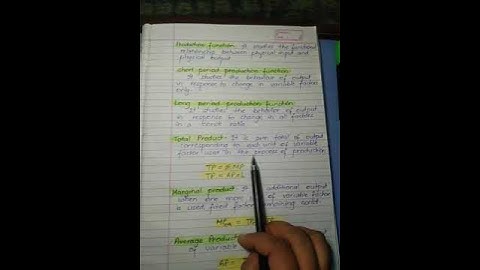 Production function It studies the functional
relationship between physical input and
physical output
Short period production function
It studies the behaviour of output
in response to change in variable factor
only.
Long period production function
It studies the behavior of output
in response to change in all factors
in a
Total Product It is sum total of output
corresponding to each unit of variable
factor used in the process of production
TP =
TP = AP × L
Marginal product additional output
when one more of variable factor
is used fixed factor remaining const
MP =
Average Product
of variable
AP =